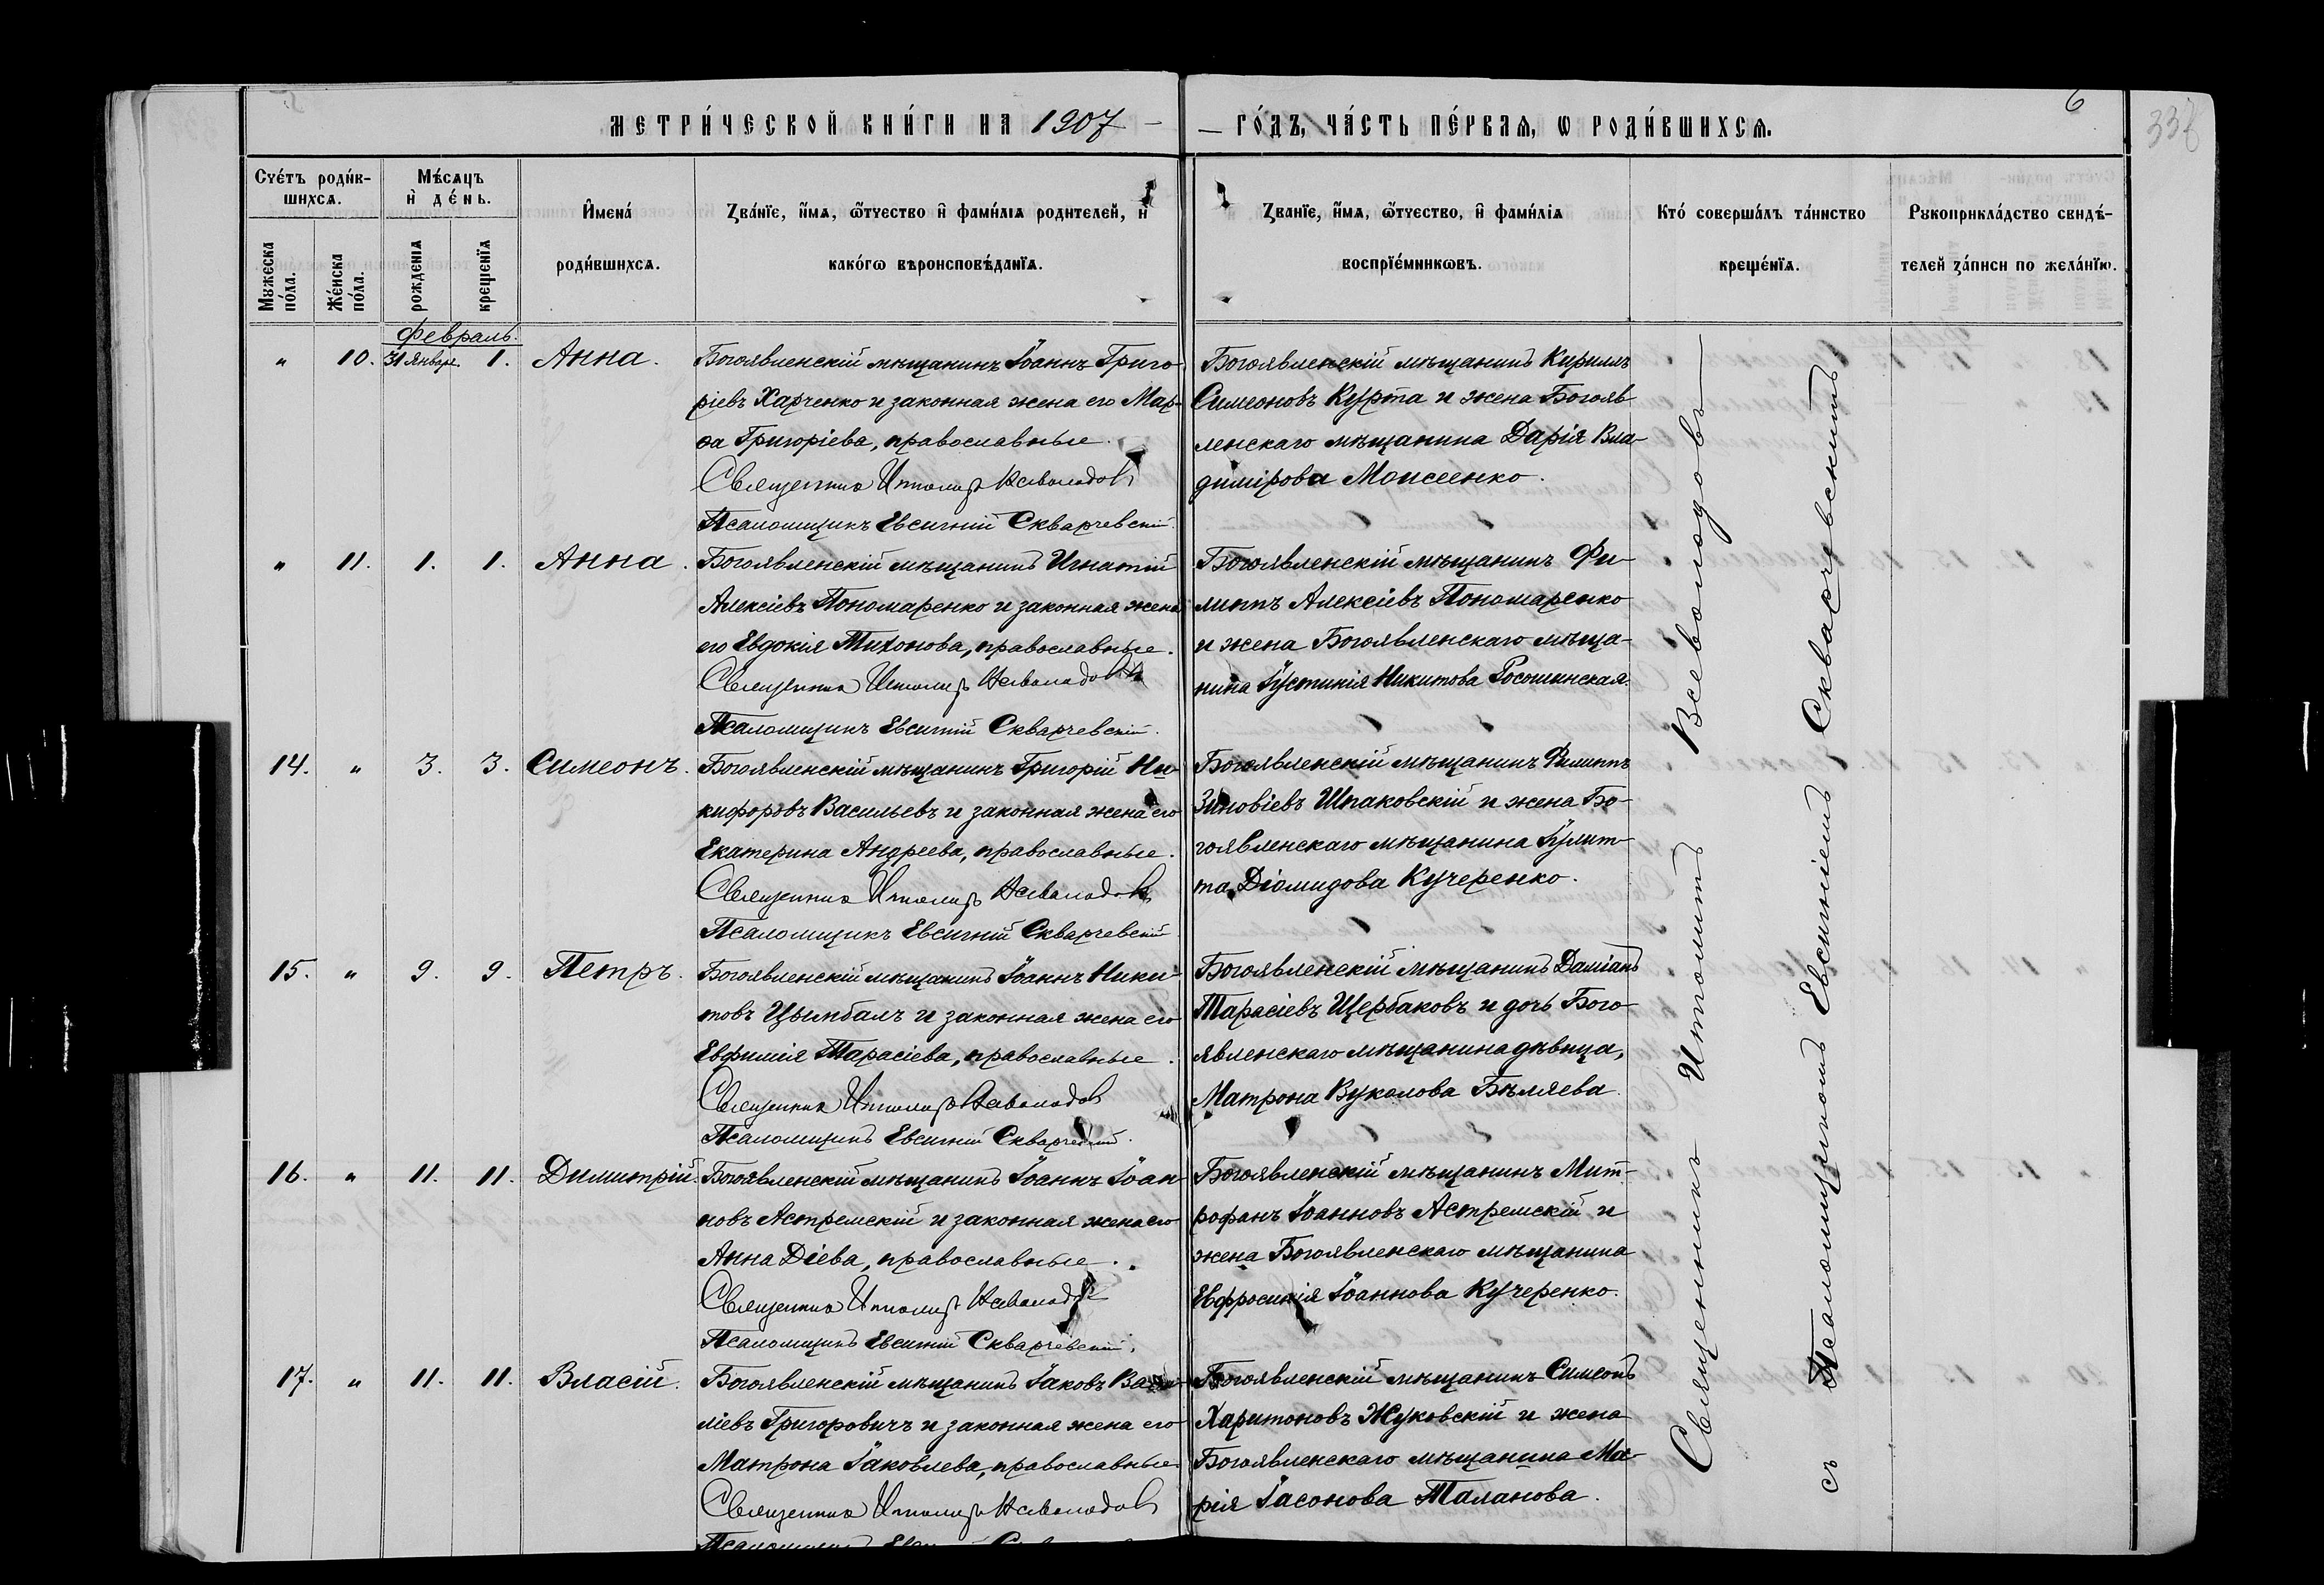 6
337
МЕТРИ́ЧЕСКОЙ КНИ́ГИ НА 1907 — — ГО́ДЪ, ЧА́СТЬ ПЕ́РВАѦ, Ѡ РОДИ́ВШИХСѦ.
Счéтъ роди́в-
шихсѧ.
Мꙋжеска пóла.
Жéнска пóла.
Мѣ́сѧцъ
и҆ де́нь.
рожденїѧ
крещенїѧ
И҆мена́
роди́вшихсѧ.
Зва́нїе, и҆́мѧ, ѻ҆́тчество и҆ фами́лїѧ родителей, и҆
како́гѡ вѣроисповѣ́данїѧ.
Зва́нїе, и҆́мѧ, ѻ҆́тчество, и҆ фами́лїѧ
воспрїе́мниковъ.
Кто́ соверша́лъ та́инство
креще́нїѧ.
Рꙋкоприкла́дство свидѣ́-
телей за́писи по жела́нїю.
Февраль.
" 10. 31 Января. 1. Анна.
Богоявленскій мѣщанинъ Іоаннъ Григо-
ріевъ Харченко и законная жена его Мар-
ѳа Григоріева, православные.
Священникъ Ипполитъ Всеволодовъ
Псаломщикъ Евсигній Скварчевскій.
Богоявленскій мѣщанинъ Кириллъ
Симеоновъ Курта и жена Богояв-
ленскаго мѣщанина Дарія Вла-
димірова Моисеенко.
" 11. 1. 1. Анна.
Богоявленскій мѣщанинъ Игнатій
Алексіевъ Пономаренко и законная жена
его Евдокія Тихонова, православные.
Священникъ Ипполитъ Всеволодовъ
Псаломщикъ Евсигній Скварчевскій.
Богоявленскій мѣщанинъ Фи-
липпъ Алексіевъ Пономаренко
и жена Богоявленскаго мѣща-
нина Іустинія Никитова Росошинская.
14. " 3. 3. Симеонъ.
Богоявленскій мѣщанинъ Григорій Ни-
кифоровъ Васильевъ и законная жена его
Екатерина Андреева, православные.
Священникъ Ипполитъ Всеволодовъ
Псаломщикъ Евсигній Скварчевскій
Богоявленскій мѣщанинъ Филиппъ
Зиновіевъ Шпаковскій и жена Бо-
гоявленскаго мѣщанина Іулит-
та Діомидова Кучеренко.
15. " 9. 9. Петръ.
Богоявленскій мѣщанинъ Іоаннъ Ники-
товъ Цымбалъ и законная жена его
Евфимія Тарасіева, православные.
Священникъ Ипполитъ Всеволодовъ
Псаломщикъ Евсигній Скварчевскій.
Богоявленскій мѣщанинъ Даміанъ
Тарасіевъ Щербаковъ и дочь Бого-
явленскаго мѣщанина дѣвица,
Матрона Вуколова Бѣляева.
16. " 11. 11. Димитрій.
Богоявленскій мѣщанинъ Іоаннъ Іоан-
новъ Астремскій и законная жена его
Анна Діева, православные.
Священникъ Ипполитъ Всеволодовъ
Псаломщикъ Евсигній Скварчевскій.
Богоявленскій мѣщанинъ Мит-
рофанъ Іоанновъ Астремскій и
жена Богоявленскаго мѣщанина
Евфросинія Іоаннова Кучеренко.
17. " 11. 11. Власій.
Богоявленскій мѣщанинъ Іаковъ
ліевъ Григоровичъ и законная жена его
Матрона Іаковлева, православные.
Священникъ Ипполитъ Всеволодовъ
Богоявленскій мѣщанинъ Симеонъ
Харитоновъ Жуковскій и жена
Богоявленскаго мѣщанина Ма-
рія Іасонова Таланова.
Священникъ Ипполитъ Всеволодовъ
съ Псаломщикомъ Евсигніемъ Скварчевскимъ